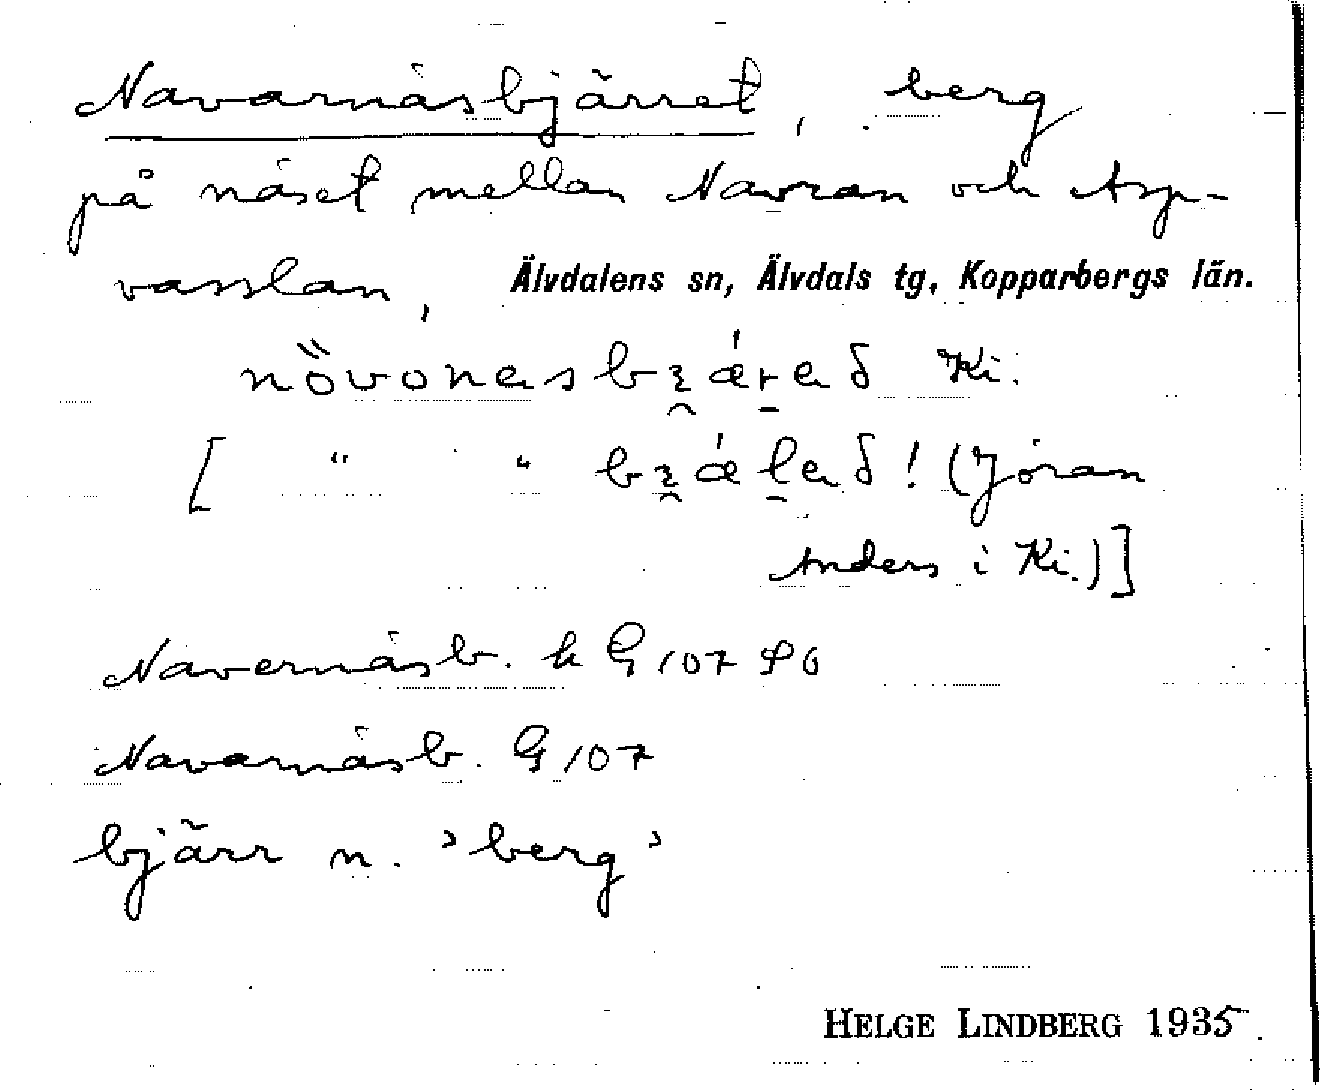 Navarnäsbjärret, berg
på näset mellan Navran och Asp-
vasslan, Älvdalens sn, Älvdals tg, Kopparbergs län.
Ki.
[ " " ! (Jöran
Anders i Ki.)]
Navernäsb. k G 107 SO
Navarnäsb. G 107
bjärr n. 'berg'
HELGE LINDBERG 1935.